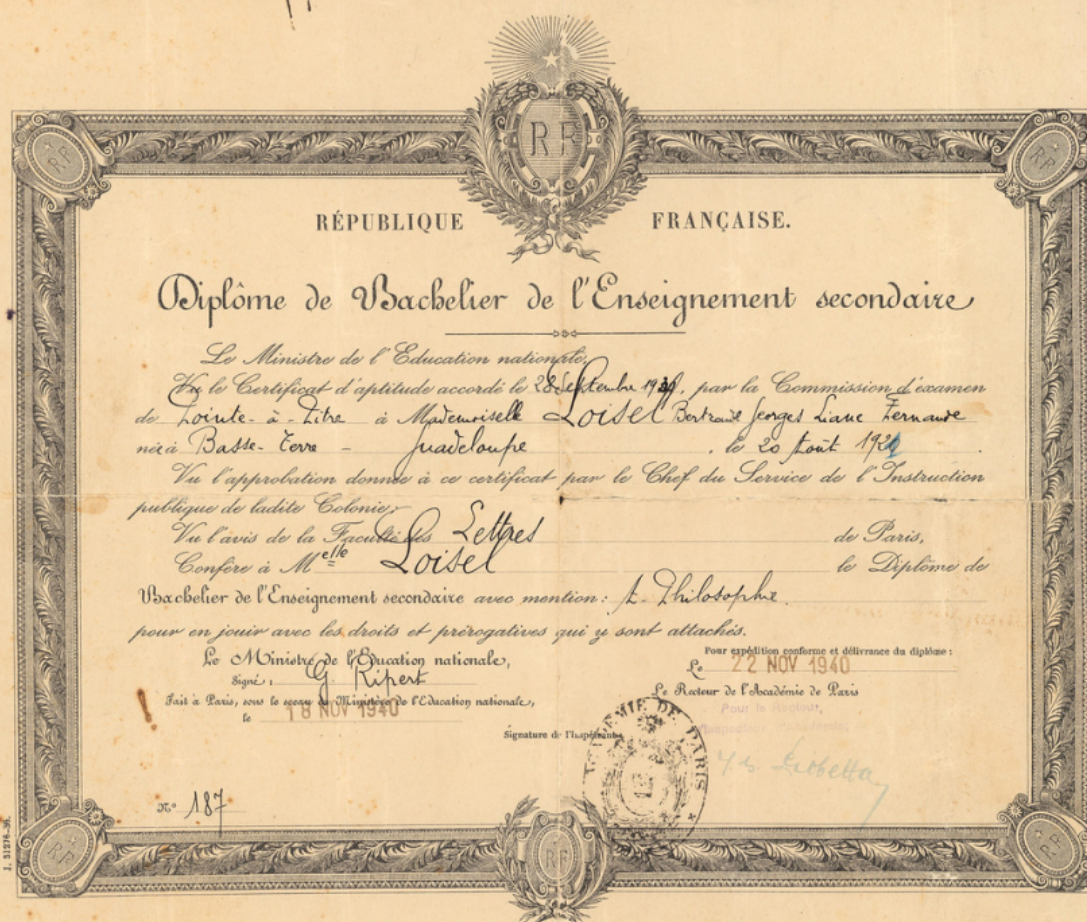 RF
RF
RF
RÉPUBLIQUE FRANÇAISE.
Diplôme de Bachelier de l'Enseignement secondaire
Le Ministre de l'Education nationale,
Vu le Certificat d'aptitude accordé le 28 Septembre, par la Commission d'examen
de Pointe-à-Pitre à Mademoiselle Loisel Bertrade Georges Liane Fernande
née à Basse-Terre - Guadeloupe, le 20 Août
Vu l'approbation donnée à ce certificat par le Chef du Service de l'Instruction
publique de ladite Colonie;
Vu l'avis de la Faculté des Lettres de Paris,
Confère à Melle Loisel le Diplôme de
Bachelier de l'Enseignement secondaire avec mention: Philosophie
pour en jouir avec les droits et prérogatives qui y sont attachés.
Le Ministre de l'Education nationale,
Signé: G. Ripert
Fait à Paris, sous le sceau du Ministère de l'Education nationale,
le 18 NOV 1940
Pour expédition conforme et délivrance du diplôme:
Le 22 NOV 1940
Le Recteur de l'Académie de Paris
Pour le Recteur,
Signature de l'Impétrant
ACADÉMIE DE PARIS
N° 187
RF
RF
RF